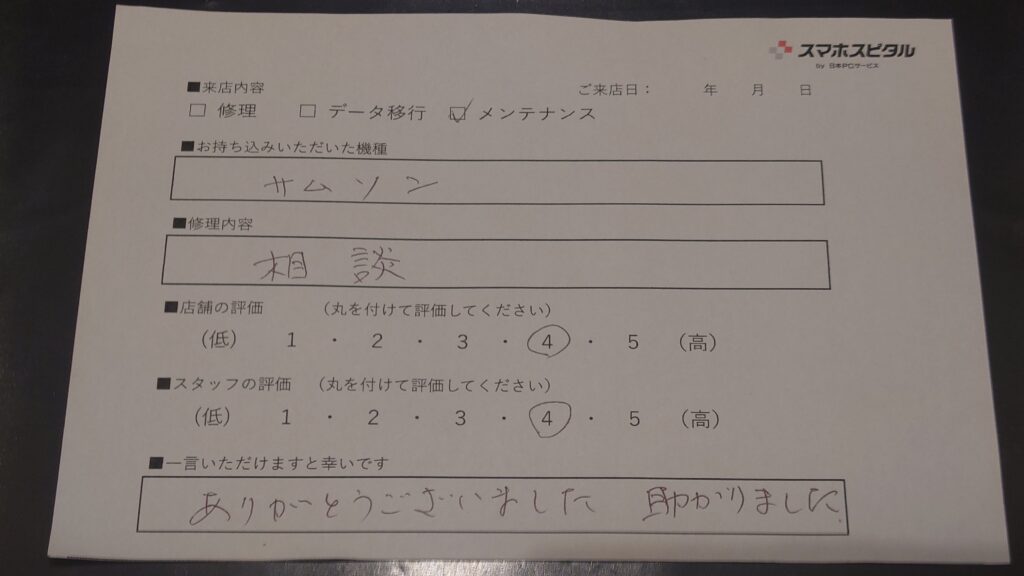 スマホスピタル
by 日本PCサービス
■来店内容 ご来店日： 年 月 日
□ 修理 □ データ移行 ☑ メンテナンス
■お持ち込みいただいた機種
サムソン
■修理内容
相談
■店舗の評価 （丸を付けて評価してください）
（低） 1 ・ 2 ・ 3 ・ 4 ・ 5 （高）
■スタッフの評価 （丸を付けて評価してください）
（低） 1 ・ 2 ・ 3 ・ 4 ・ 5 （高）
■一言いただけますと幸いです
ありがとうございました 助かりました